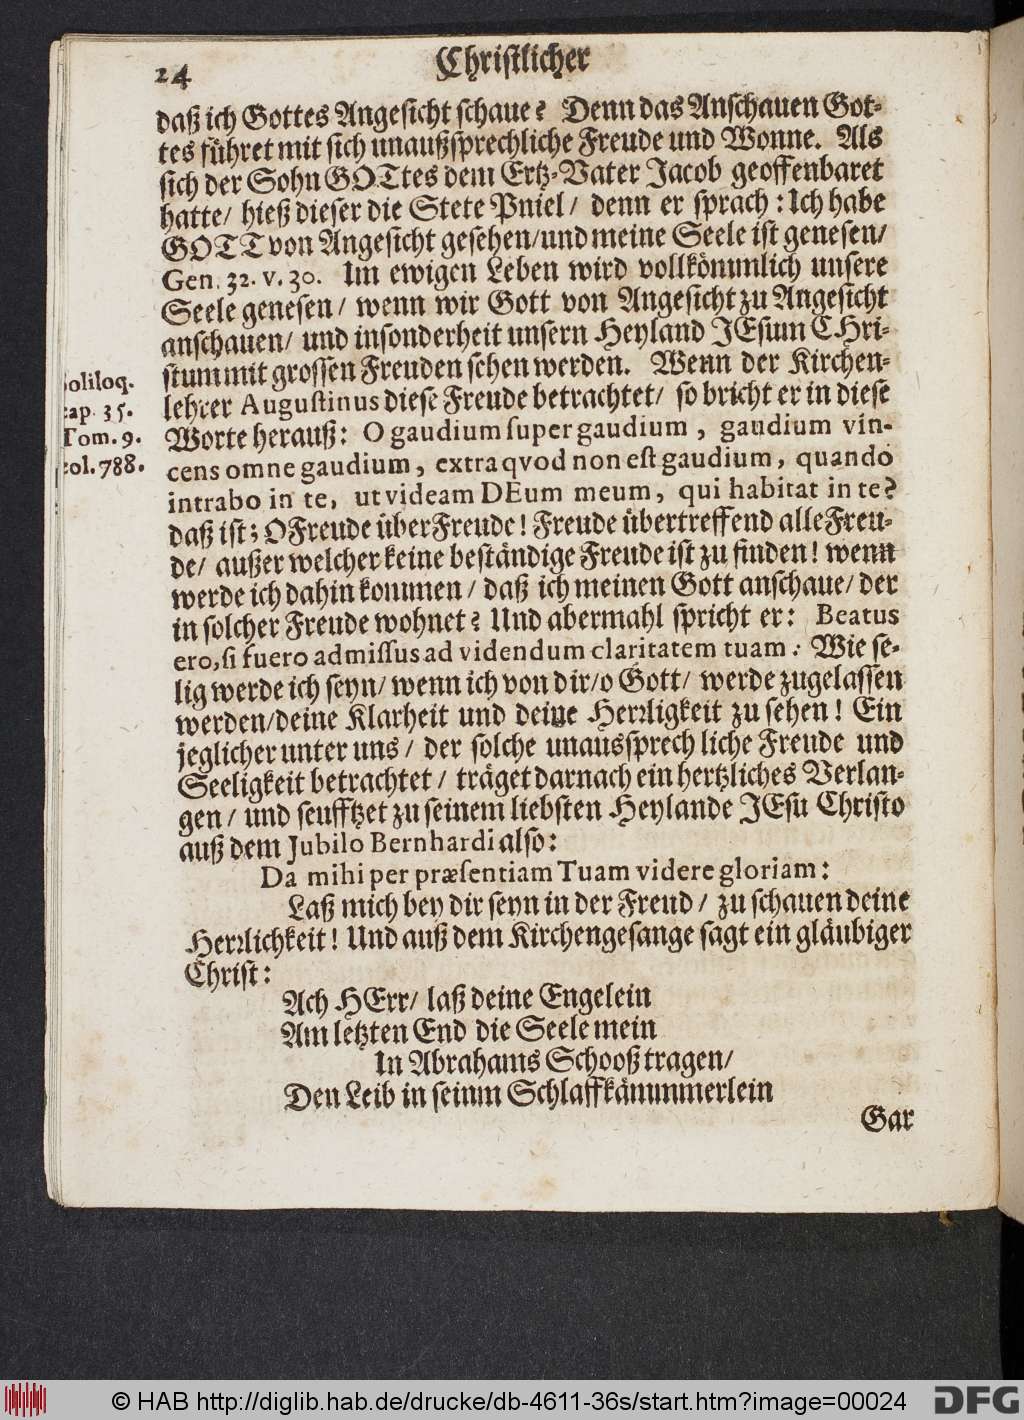 24
Christlicher
daß ich Gottes Angesicht schaue? Denn das Anschauen Got-
tes führet mit sich unaußsprechliche Freude und Wonne. Als
sich der Sohn GOTtes dem Ertz-Vater Jacob geoffenbaret
hatte/ hieß dieser die Stete Pniel/ denn er sprach: Ich habe
GOTT von Angesicht gesehen/und meine Seele ist genesen/
Gen. 32. v. 30. Im ewigen Leben wird vollkömmlich unsere
Seele genesen/ wenn wir Gott von Angesicht zu Angesicht
anschauen/ und insonderheit unsern Heyland JEsum CHri-
stum mit grossen Freuden sehen werden. Wenn der Kirchen-
lehrer Augustinus diese Freude betrachtet/ so bricht er in diese
Worte herauß: O gaudium super gaudium, gaudium vin-
cens omne gaudium, extra qvod non est gaudium, quando
intrabo in te, ut videam DEum meum, qui habitat in te?
daß ist; O Freude über Freude! Freude übertreffend alle Freu-
de/ außer welcher keine beständige Freude ist zu finden! wenn
werde ich dahin kommen/ daß ich meinen Gott anschaue/ der
in solcher Freude wohnet? Und abermahl spricht er: Beatus
ero, si fuero admissus ad videndum claritatem tuam: Wie se-
lig werde ich seyn/ wenn ich von dir/o Gott/ werde zugelassen
werden/deine Klarheit und deine Herrligkeit zu sehen! Ein
jeglicher unter uns/ der solche unaussprech liche Freude und
Seeligkeit betrachtet/ träget darnach ein hertzliches Verlan-
gen/ und seufftzet zu seinem liebsten Heylande JEsu Christo
auß dem Jubilo Bernhardi also:
Da mihi per præsentiam Tuam videre gloriam:
Laß mich bey dir seyn in der Freud/ zu schauen deine
Herrlichkeit! Und auß dem Kirchengesange sagt ein gläubiger
Christ:
Ach HErr/ laß deine Engelein
Am letzten End die Seele mein
In Abrahams Schooß tragen/
Den Leib in seinm Schlaffkämmmerlein
Gar
oliloq.
ap. 35.
Tom. 9.
col. 788.
© HAB http://diglib.hab.de/drucke/db-4611-36s/start.htm?image=00024
DFG